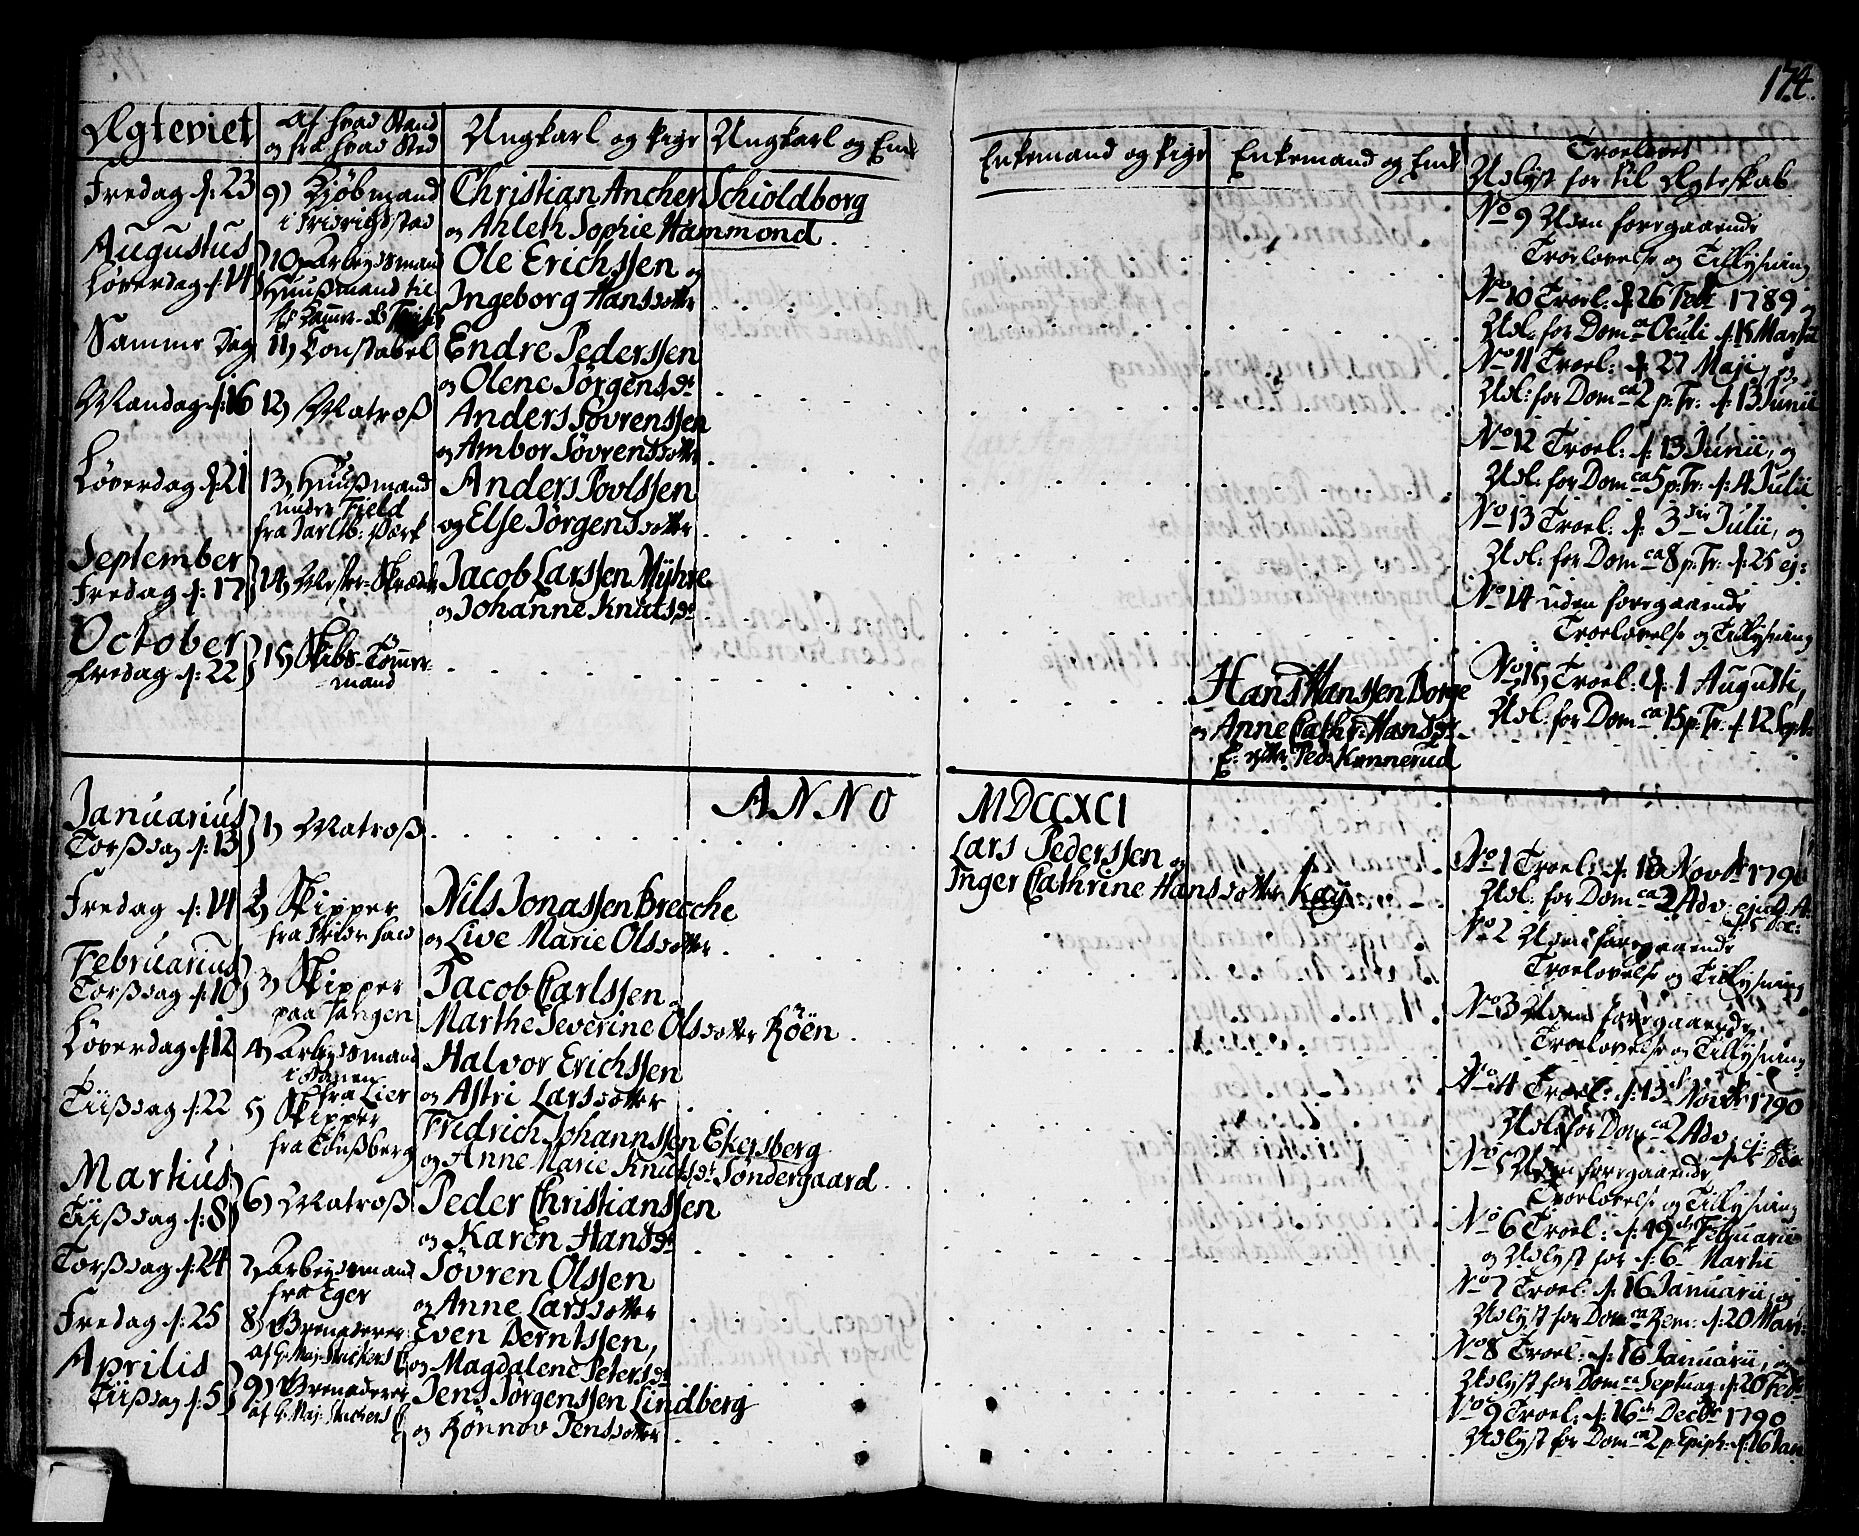 174.
Ægteviet
Af hvad Stand
og fra hvad Sted
Ungkarl og Pige
Ungkarl og Enke
Enkemand og Pige
Enkemand og Enke
Troelovet
Udlyst for til Ægteskab
Fredag d: 23
9) Kjöbmand
i Fridrichstad
Christian Ancher Schioldborg
og Ahleth Sophie Hammond
No 9 Uden foregaaende
Troelovelse og Tillysning
Augustus
Löverdag d: 14
10) Arbeydsmand
Huusmand til
Ole Erichssen og
Ingeborg Hansdotter
No 10 Troel: d. 26 Febr 1789 og
Udl: for Domca Oculi d: 15 Martii
Samme Dag
11) Constabel
Endre Pederssen
og Olene Jörgensdr
No 11 Troel: d: 27 Maji, og
Udl: for Domca 2 p: Tr: d: 13 Junii
Mandag d: 16
12) Matroß
Anders Sövrenssen
og Ambor Sövrensdotter
No 12 Troel: d: 13 Junii, og
Udl: for Domca 5 p: Tr: d: 4 Julii
Löverdag d: 21
13) Huusmand
under Field
fra Jarlsb: Værk
Anders Povlssen
og Else Jörgensdotter
No 13 Troel: d: 3die Julii, og
Udl: for Domca 8 p: Tr: d: 25 ej:
September
Fredag d: 17
14) Mester: Skræder
Jacob Larssen Myhre
og Johanne Knutsdr
No 14 uden foregaaende
Troelovelse og Tillysning
October
Fredag d: 22
15) Skibs-Tömmer-
mand
Hans Hanssen Borge
og Anne Cathr: Hansdr
E. efter Ped: Kinnerud
No 15 Troel: d: 1 Augusti,
Udl: for Domca 15 p: Tr: d: 12 Sept:
ANNO MDCCXCI
Januarius
Torßdag d: 13
1) Matroß
Lars Pederssen og
Inger Cathrine Hansdotter Kay
No 1 Troel: d: 13 Novbr 1790
Udl: for Domca 2 Adv: ej: A:
d: 5 Dec:
Fredag d: 14
2) Skipper
Nils Jonassen Brecche
og Live Marie Olsdotter
No 2 Uden foregaaende
Troelovelse og Tillysning
Februarius
Torßdag d: 10
3) Skipper
paa Tangen
Jacob Carlssen og
Marthe Severine Olsdotter Röen
No 3 Uden foregaaende
Troelovelse og Tillysning
Löverdag d: 12
4) Arbeydsmand
fra Lier
Halvor Erichssen
og Astri Larsdotter
No 4 Troel: d: 13 Novbr 1790
Udl: for Domca 2 Adv: ej: a:
d: 5 Dec:
Tiißdag d: 22
5) Skipper
fra Tönßberg
Fridrich Johannssen Ekersberg
og Anne Marie Knutsdr Söndergaard
No 5 Uden foregaaende
Troelovelse og Tillysning
Martius
Tiißdag d: 8
6) Matroß
Peder Christianssen
og Karen Hansdr
No 6 Troel: d: 19de Februarii
og Udlyst for d: 6te Martii
Torßdag d: 24
7) Arbeydsmand
fra Eger
Sövren Olssen
og Anne Larsdotter
No 7 Troel: d: 16 Januarii, og
Udlyst for Domca Rem: d: 20 Mart:
Fredag d: 25
8) Grenaderer
Even Berntssen,
og Magdalene Petersdr
No 8 Troel: d: 16 Januarii, og
Udlyst for Domca Septuag: d: 20 Febr
Aprilis
Tiißdag d: 5
9) Grenaderer
Jens Jörgenssen Lindberg
og Rönnov Jensdotter
No 9 Troel: d: 16de Decbr 1790
Udlyst for Domca 2 p. Epiph: d: 16 Jan